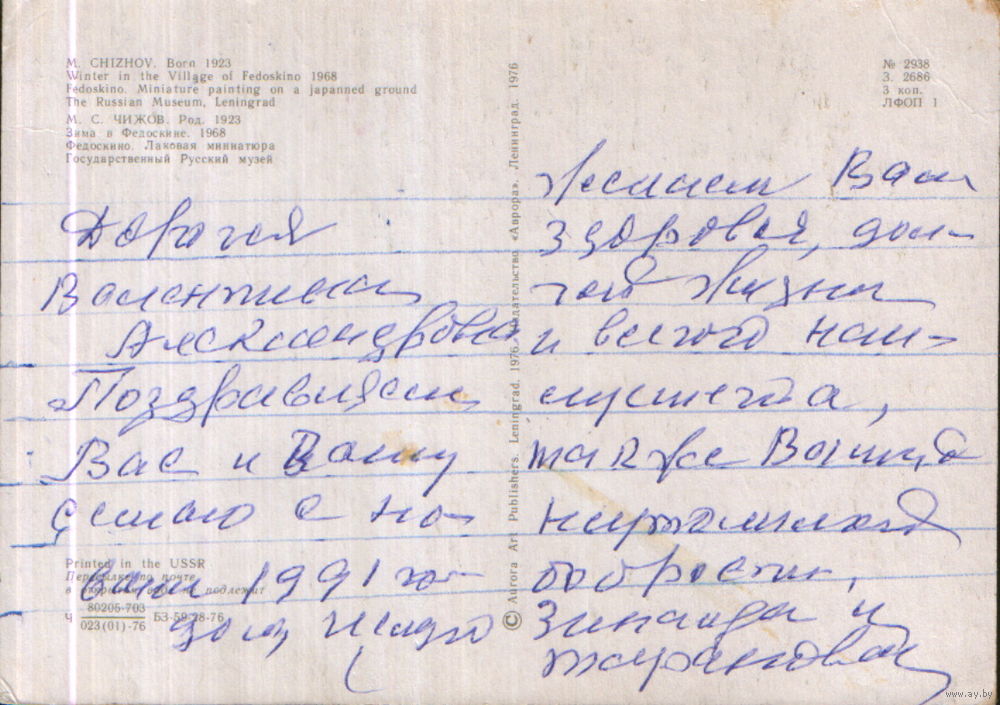 M. CHIZHOV. Born 1923
Winter in the Village of Fedoskino 1968
Fedoskino. Miniature painting on a japanned ground
The Russian Museum, Leningrad
М. С. ЧИЖОВ. Род. 1923
Зима в Федоскине. 1968
Федоскино. Лаковая миниатюра
Государственный Русский музей
№ 2938
З. 2686
3 коп.
ЛФОП 1
Дорогая
Валентина
Александровна
Поздравляем
Вас и Вашу
семью с но-
вым 1991 го-
дом,
© Aurora Art Publishers. Leningrad. 1976. Издательство «Аврора». Ленинград. 1976
Желаем Вам
здоровья, дол-
гой жизни
и всего наи-
лучшего,
также Вашей
бодрости,
Зинаида и
Printed in the USSR
Пересылке по почте
в открытом виде не подлежит
Ч 80205-703 / 023(01)-76 БЗ-59-28-76
www.ay.by